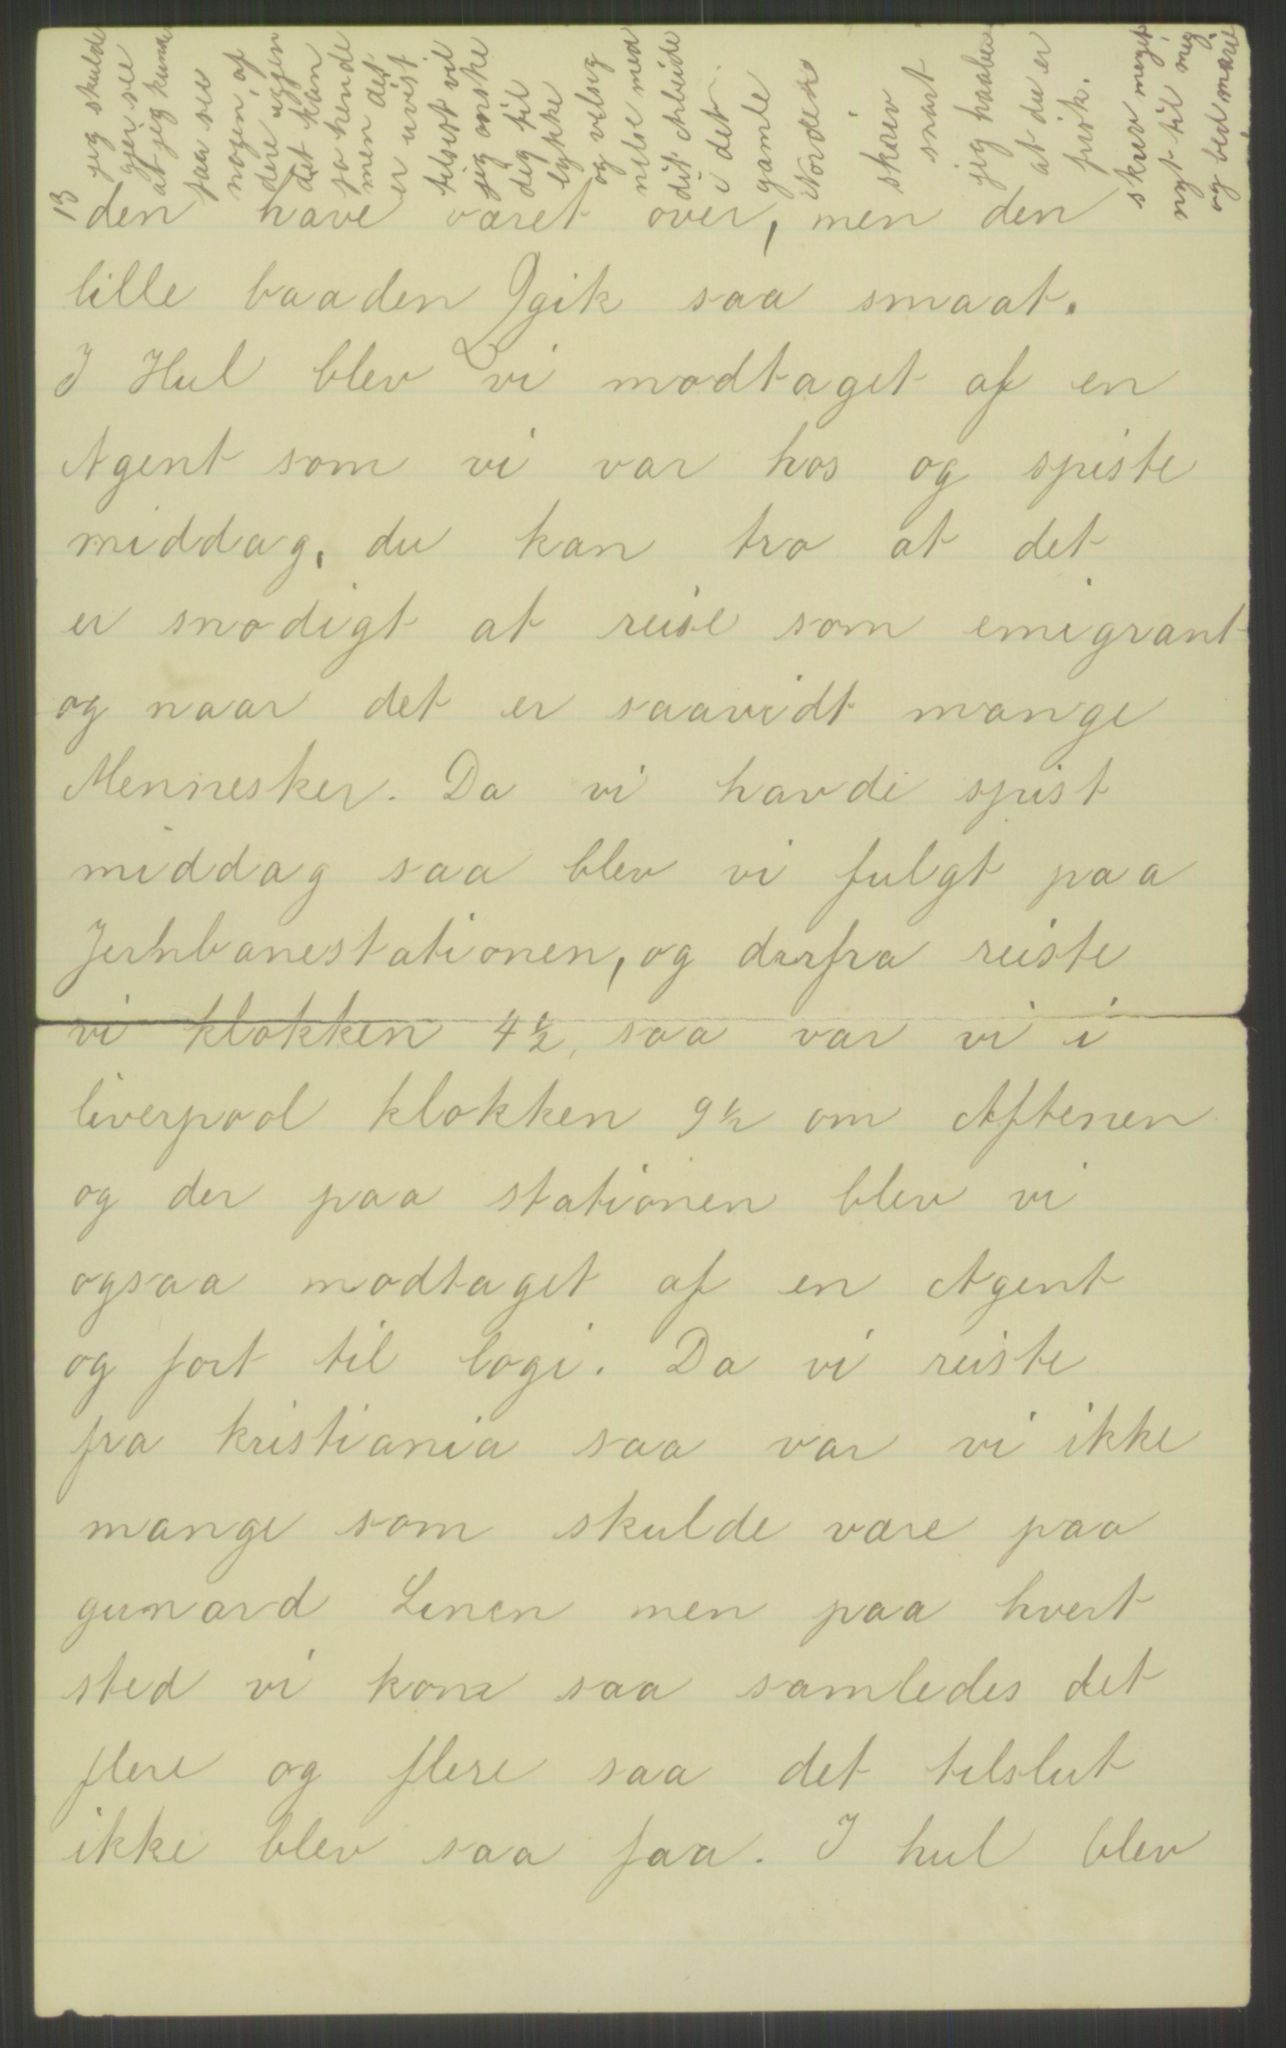 13
den have været over, men den
lille baaden gik saa smaat.
I Hul blev vi modtaget af en
Agent som vi var hos og spiste
middag, du kan tro at det
er snodigt at reise som emigrant
og naar det er saavidt mange
Mennesker. Da vi havde spist
middag saa blev vi fulgt paa
Jernbanestationen, og derfra reiste
vi klokken 4½, saa var vi i
liverpool klokken 9½ om Aftenen
og der paa stationen blev vi
ogsaa modtaget af en Agent
og fort til logi. Da vi reiste
fra kristiania saa var vi ikke
mange som skulde være paa
gunard Linen men paa hvert
sted vi kom saa samledes det
flere og flere saa det tilslut
ikke blev saa faa. I hul blev
jeg skulde
gjer see
at jeg kunde
faa see
nogen af
dere igjen
det kan
jo hende
men det
er uvist
tilsist vil
jeg onske
dig til
lykke
og velsig
nelse med
dit Arbeide
i det
gamle
Norden
skriv
snart
jeg haaber
at du er
frisk.
skriv meget
nyt til mig
og bed marie